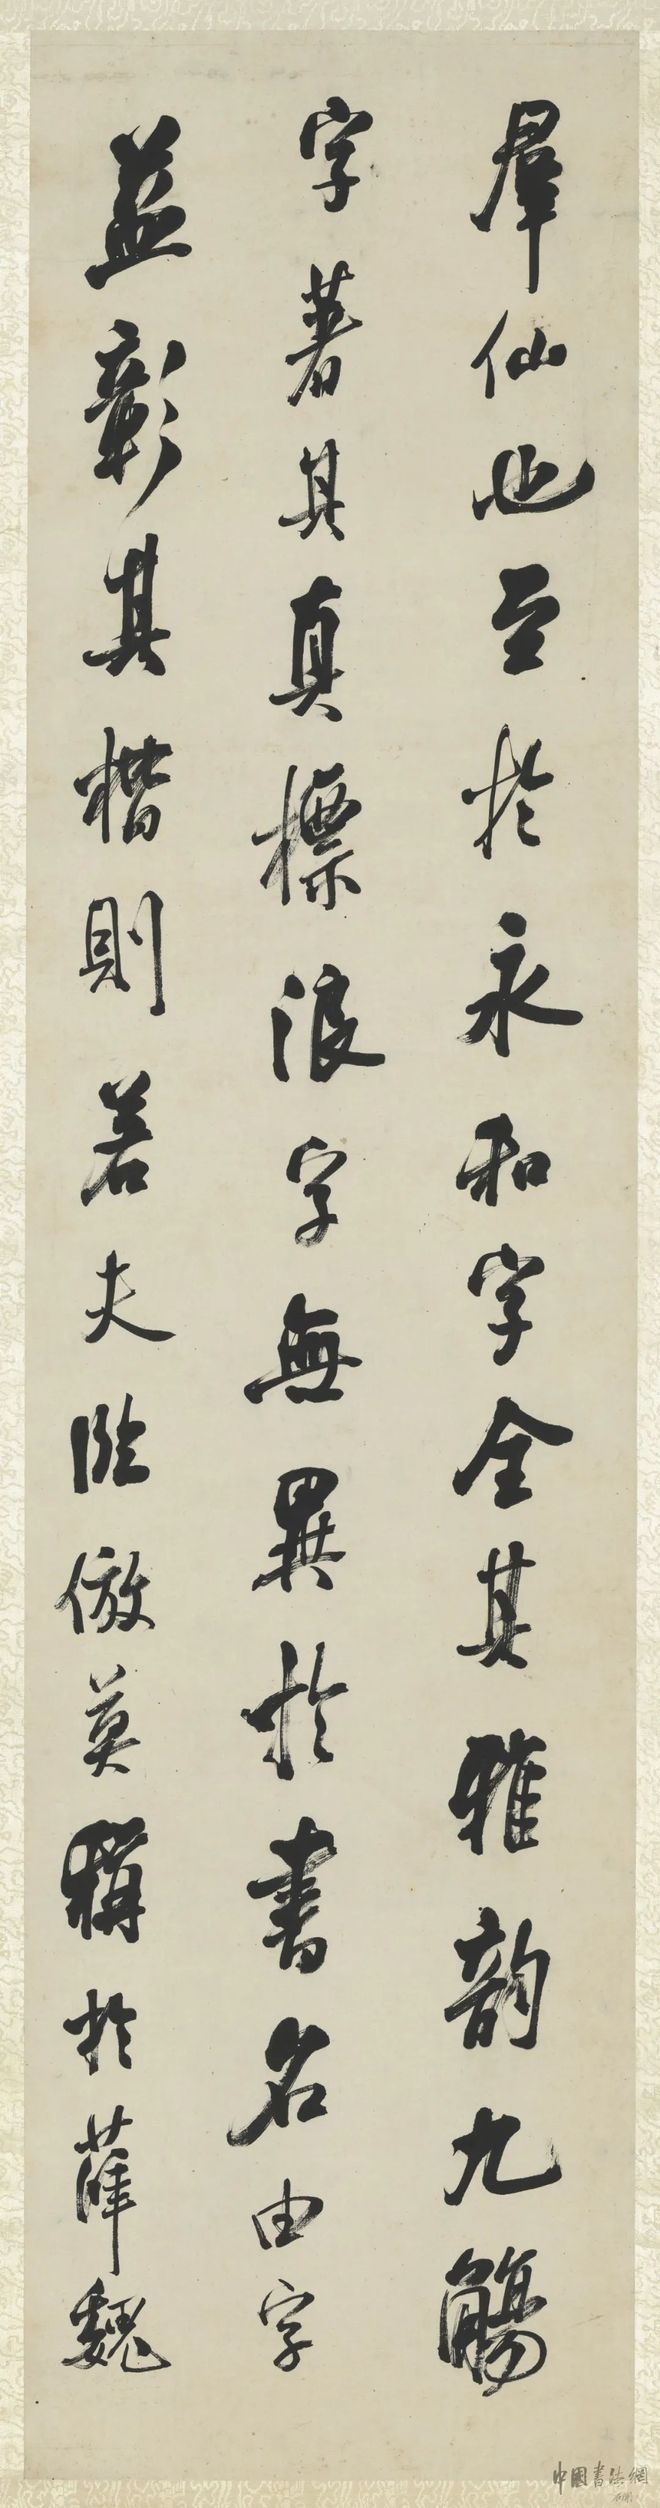 羣仙也至於永和字全其雅韻九觴
字著其真標浪字無異於書名由字
益彰其楷則若夫臨倣莫稱於薛魏
中國書法網